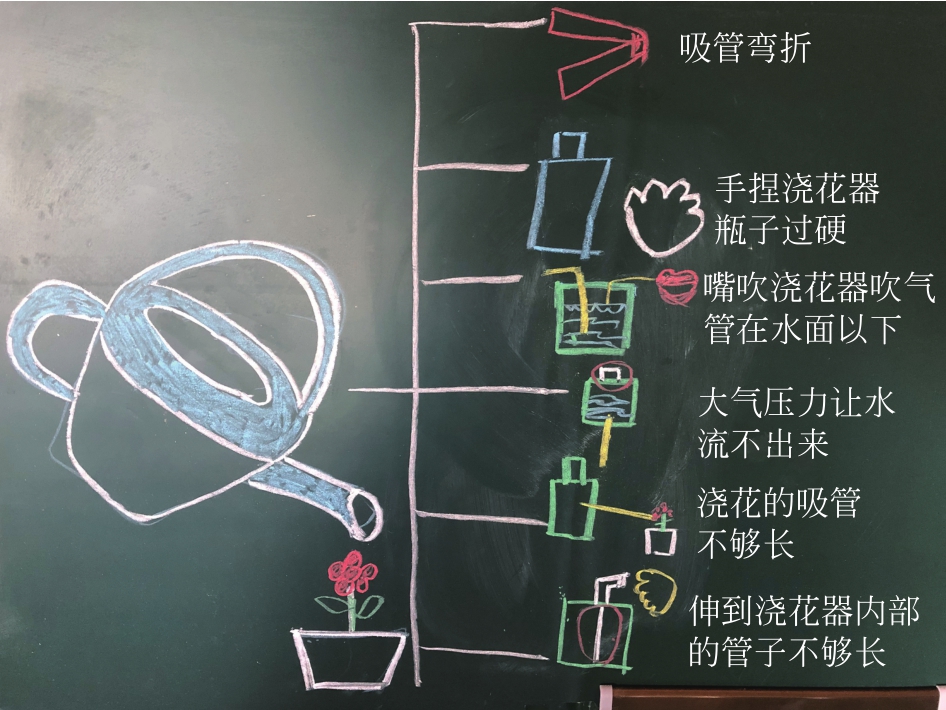 吸管弯折
手捏浇花器
瓶子过硬
嘴吹浇花器吹气
管在水面以下
大气压力让水
流不出来
浇花的吸管
不够长
伸到浇花器内部
的管子不够长